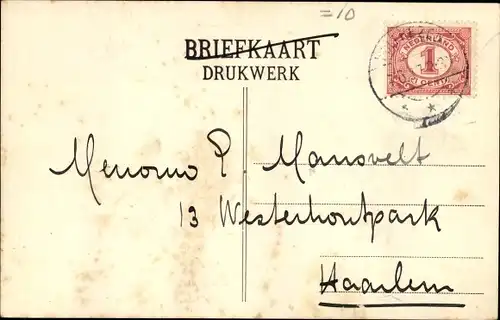 =10
BRIEFKAART
DRUKWERK
NEDERLAND
1
CENT
P. Mansvelt
13 Westerhoutpark
Haarlem